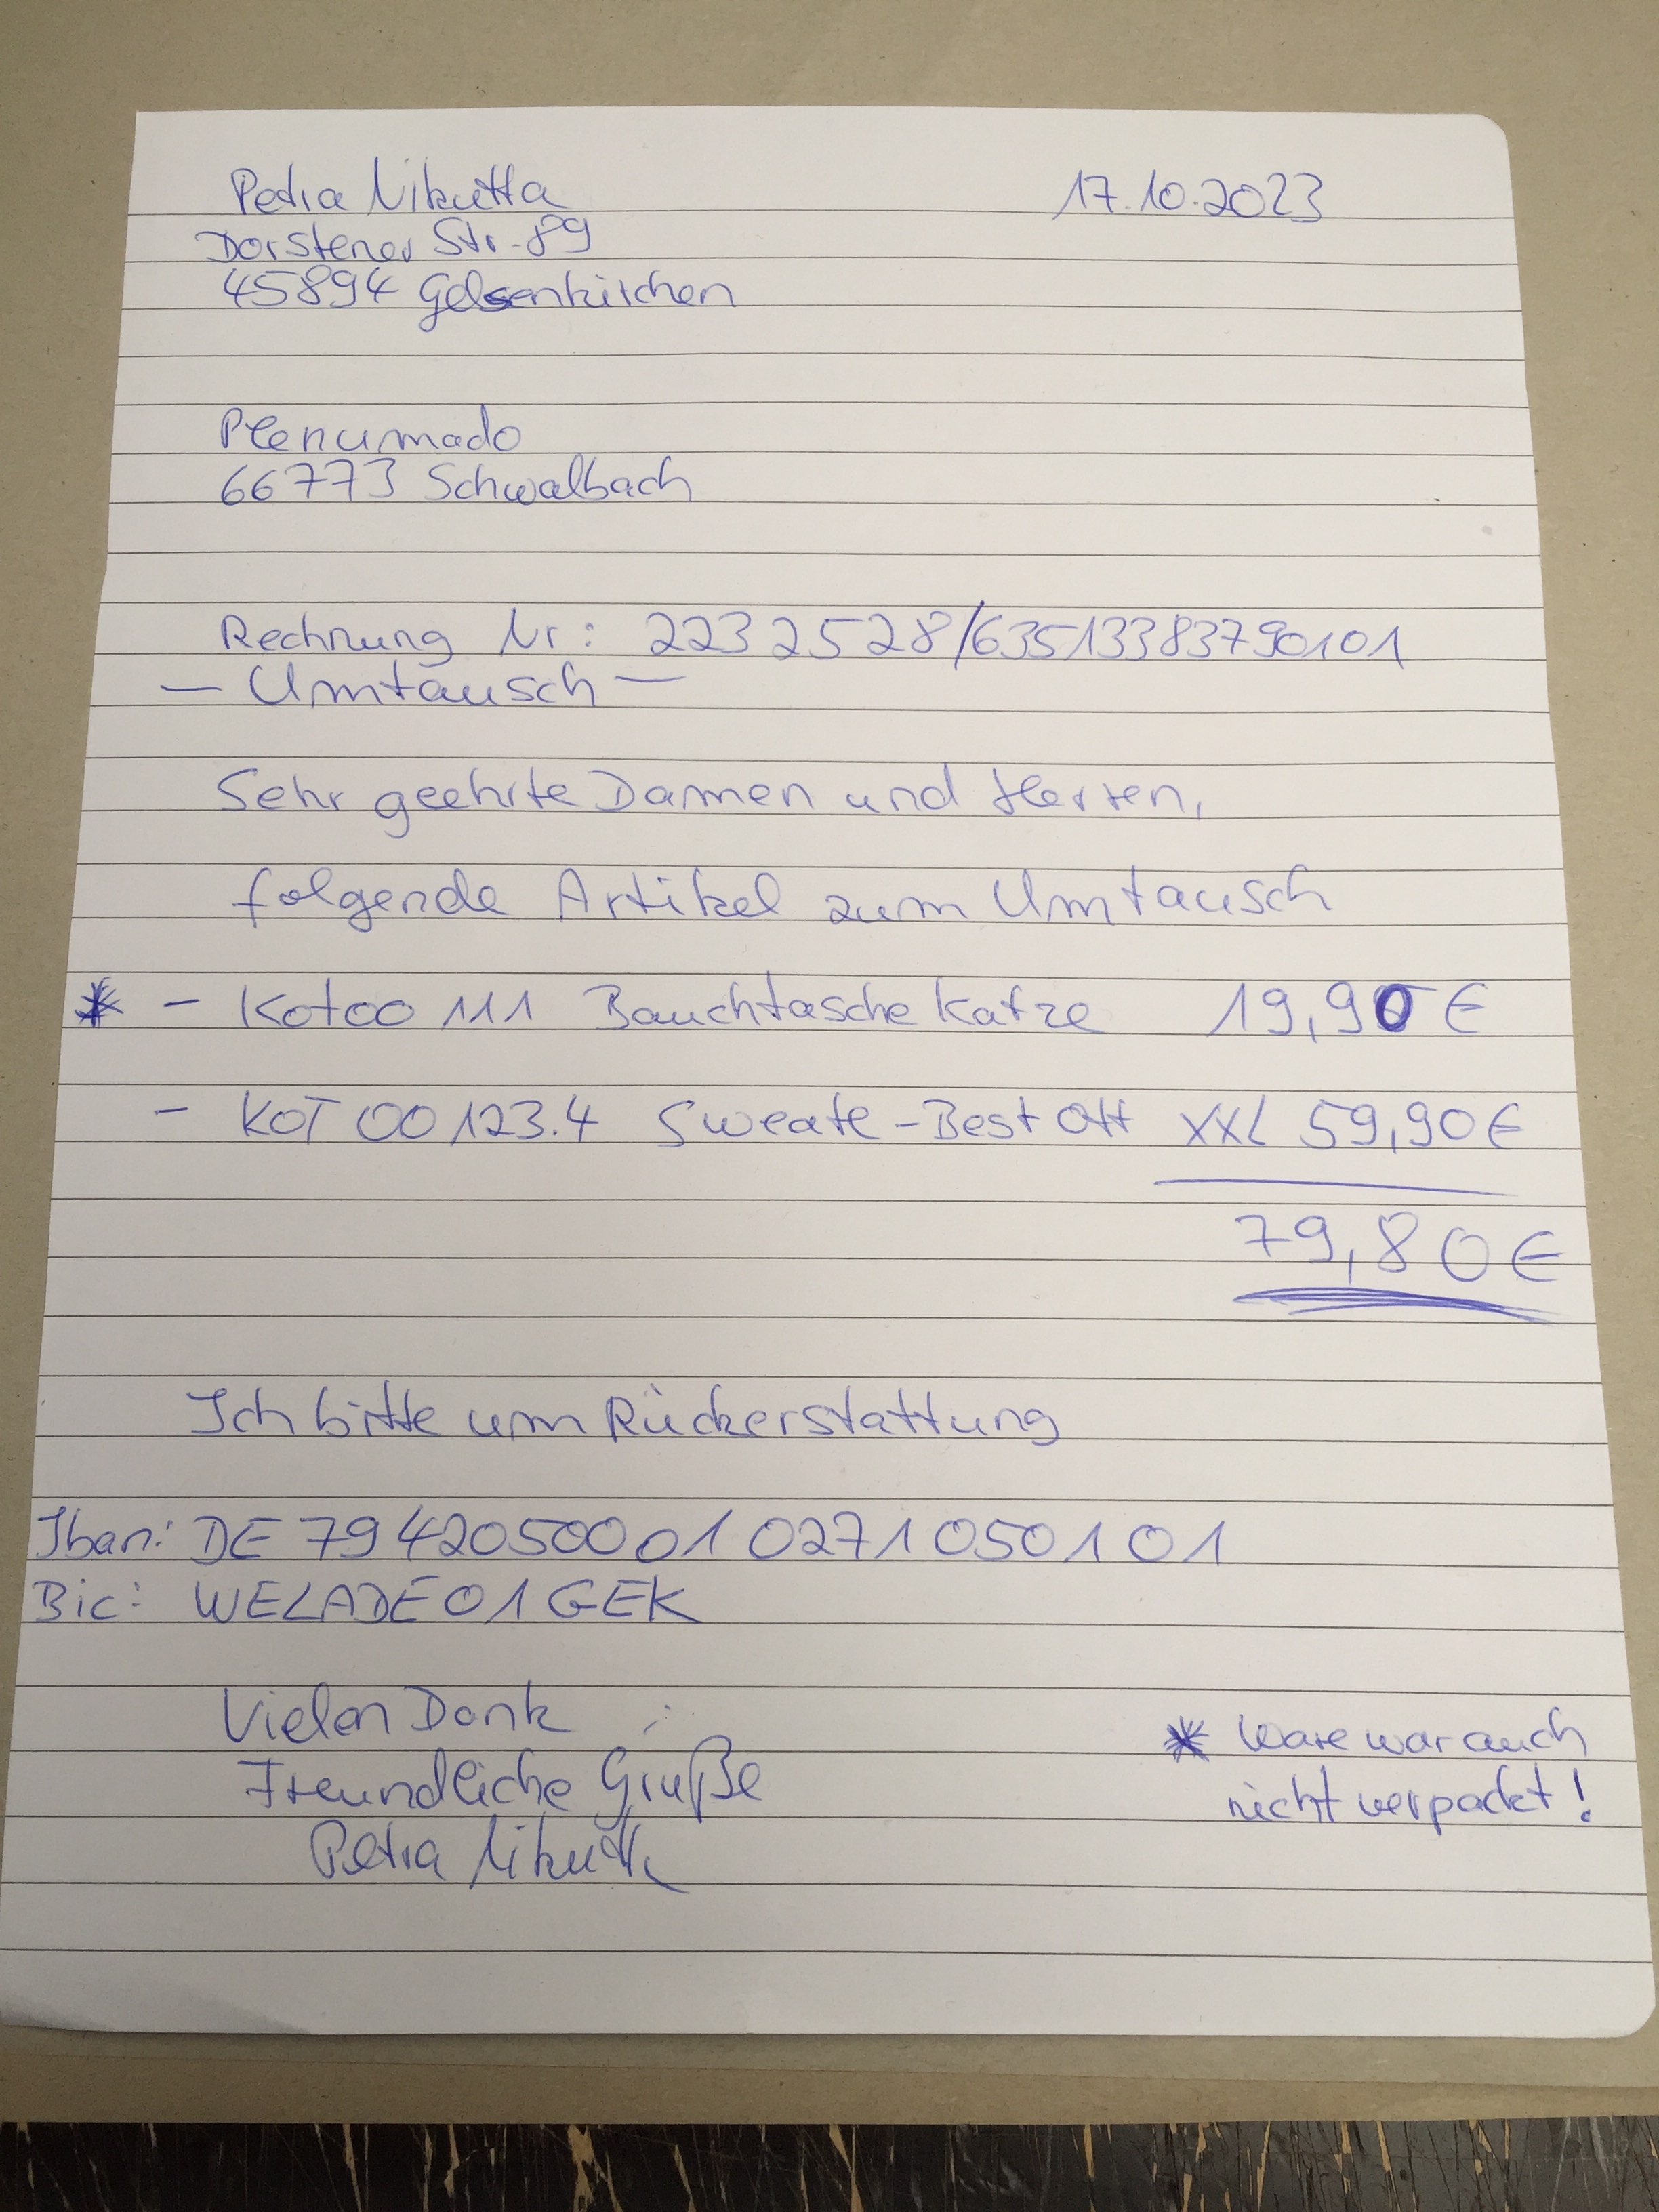 Petra Nikutta
17.10.2023
Dorstener Str. 89
45894 Gelsenkirchen
Plenumado
66773 Schwalbach
Rechnung Nr: 2232528/63513383790101
— Umtausch —
Sehr geehrte Damen und Herren,
folgende Artikel zum Umtausch
* - Kotoo 111 Bauchtasche Katze 19,90 €
- KOT 00123.4 Sweate-Best Ott XXL 59,90 €
79,80 €
Ich bitte um Rückerstattung
Iban: DE 79 4205 0001 0271 0501 01
Bic: WELADE01GEK
Vielen Dank
Freundliche Grüße
Petra Nikutta
* Ware war auch
nicht verpackt!